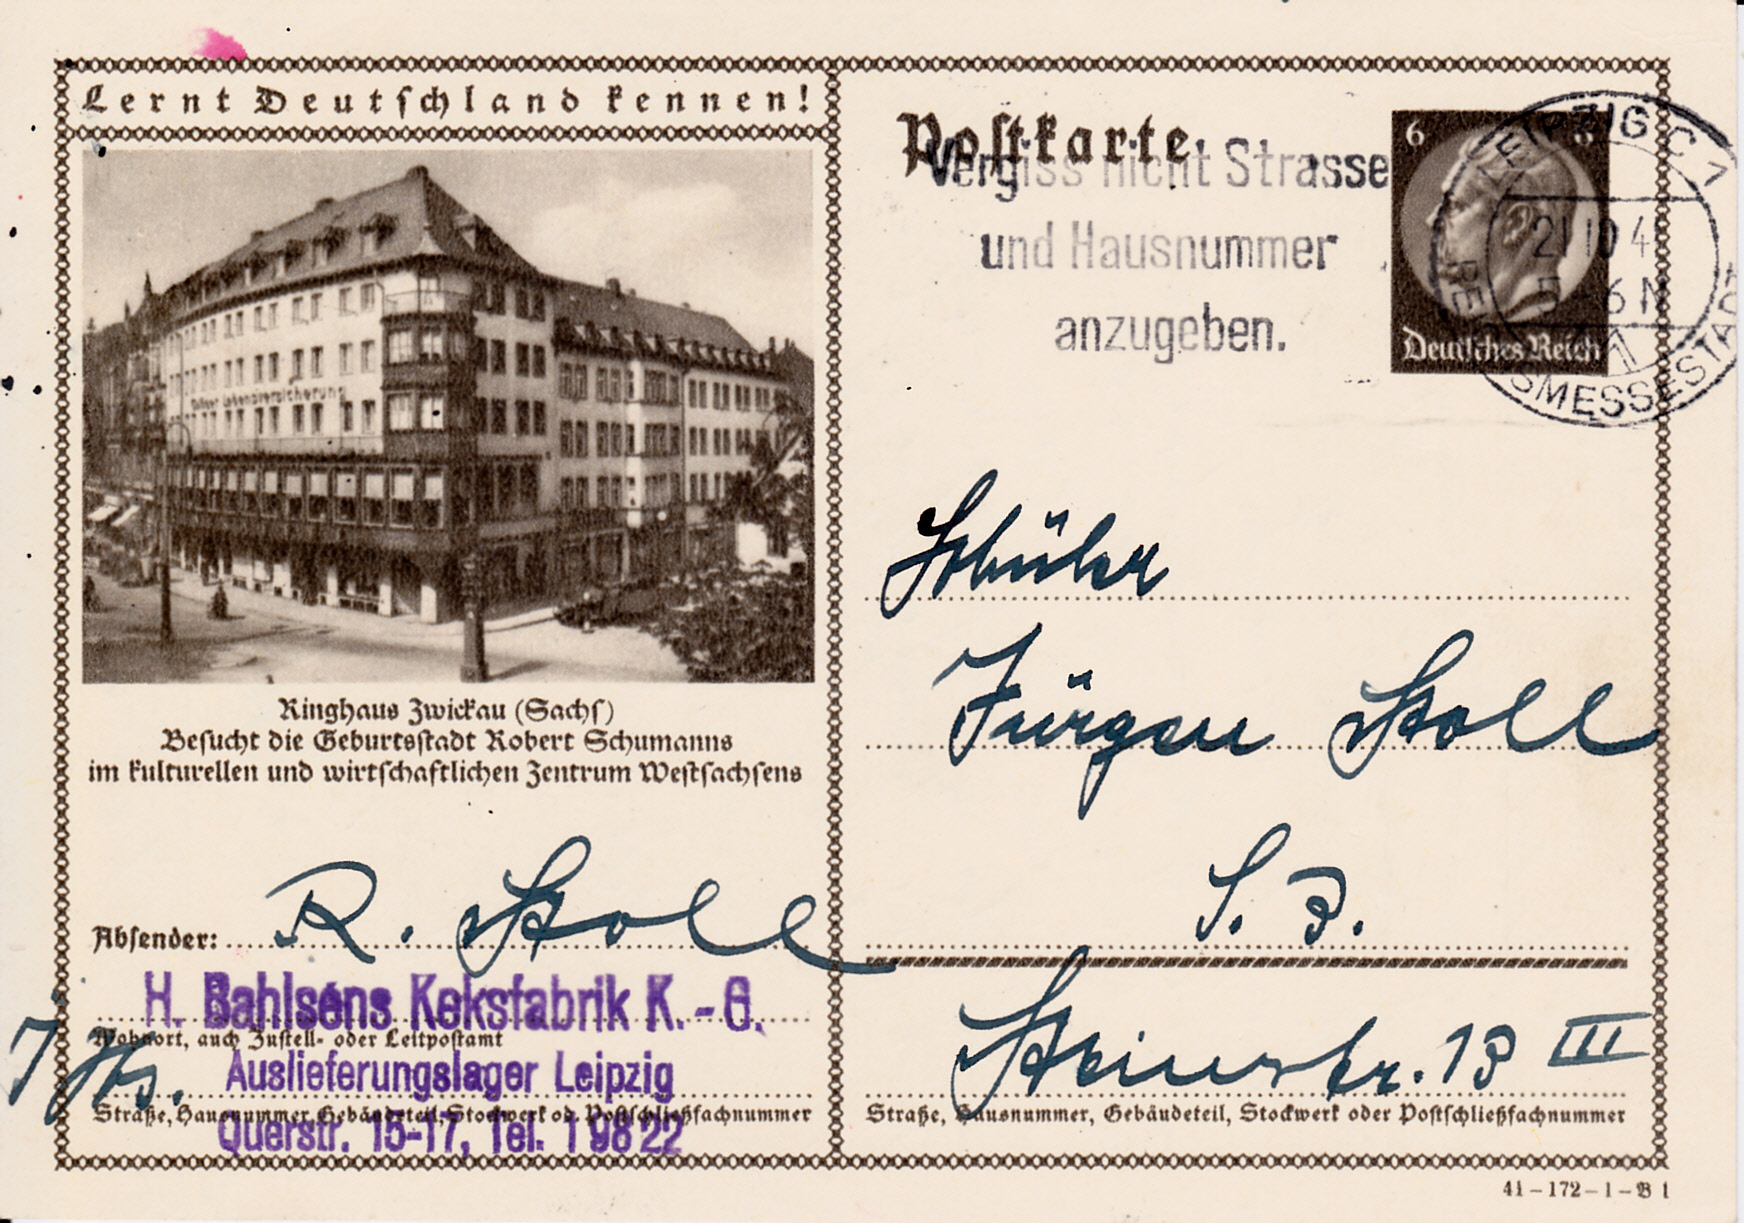 Lernt Deutschland kennen!
Kölner Lebensversicherung
Ringhaus Zwickau (Sachs)
Besucht die Geburtsstadt Robert Schumanns
im kulturellen und wirtschaftlichen Zentrum Westsachsens
Absender: R. Stoll
H. Bahlsens Keksfabrik K.-G.
Wohnort, auch Zustell- oder Leitpostamt
Auslieferungslager Leipzig
Straße, Hausnummer, Gebäudeteil, Stockwerk od. Postschließfachnummer
Querstr. 15-17, Tel. 19822
Postkarte
Vergiss nicht Strasse
und Hausnummer
anzugeben.
6 6
Deutsches Reich
LEIPZIG C 1
21 10 4
5-6 N
REICHSMESSESTADT
Schüler
Jürgen Stoll
Steinstr. 13 III
Straße, Hausnummer, Gebäudeteil, Stockwerk oder Postschließfachnummer
41-172-1-B 1